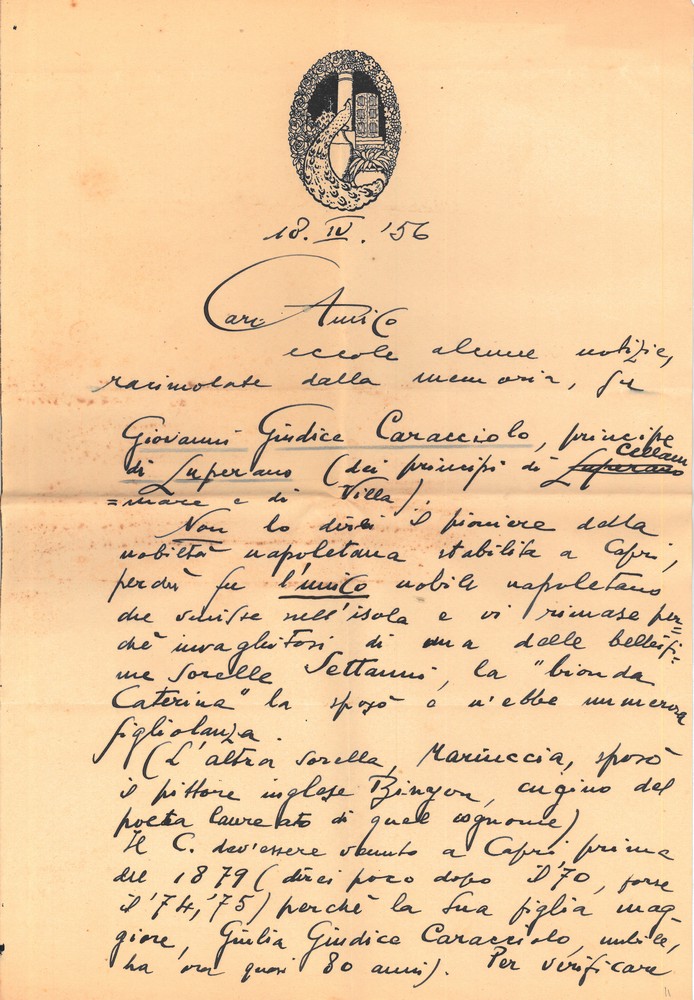 18. IV. '56
Caro Amico
eccole alcune notizie,
racimolate dalla memoria, su
Giovanni Giudice Caracciolo, principe
di Luperano (dei principi di Luperano Cellam
=mare e di Villa).
Non lo direi il pioniere della
nobiltà napoletana stabilita a Capri,
perchè fu l'unico nobile napoletano
che venisse nell'isola e vi rimase per=
chè invaghitosi di una delle bellissi=
me sorelle Settanni, la "bionda
Caterina" la sposò e n'ebbe numerosa
figliolanza.
(L'altra sorella, Mariuccia, sposò
il pittore inglese Binyon, cugino del
poeta laureato di quel cognome)
Il C. dev'essere venuto a Capri prima
del 1879 (direi poco dopo il '70, forse
il '74, '75) perchè la sua figlia mag-
giore, Giulia Giudice Caracciolo, nubile,
ha ora quasi 80 anni). Per verificare